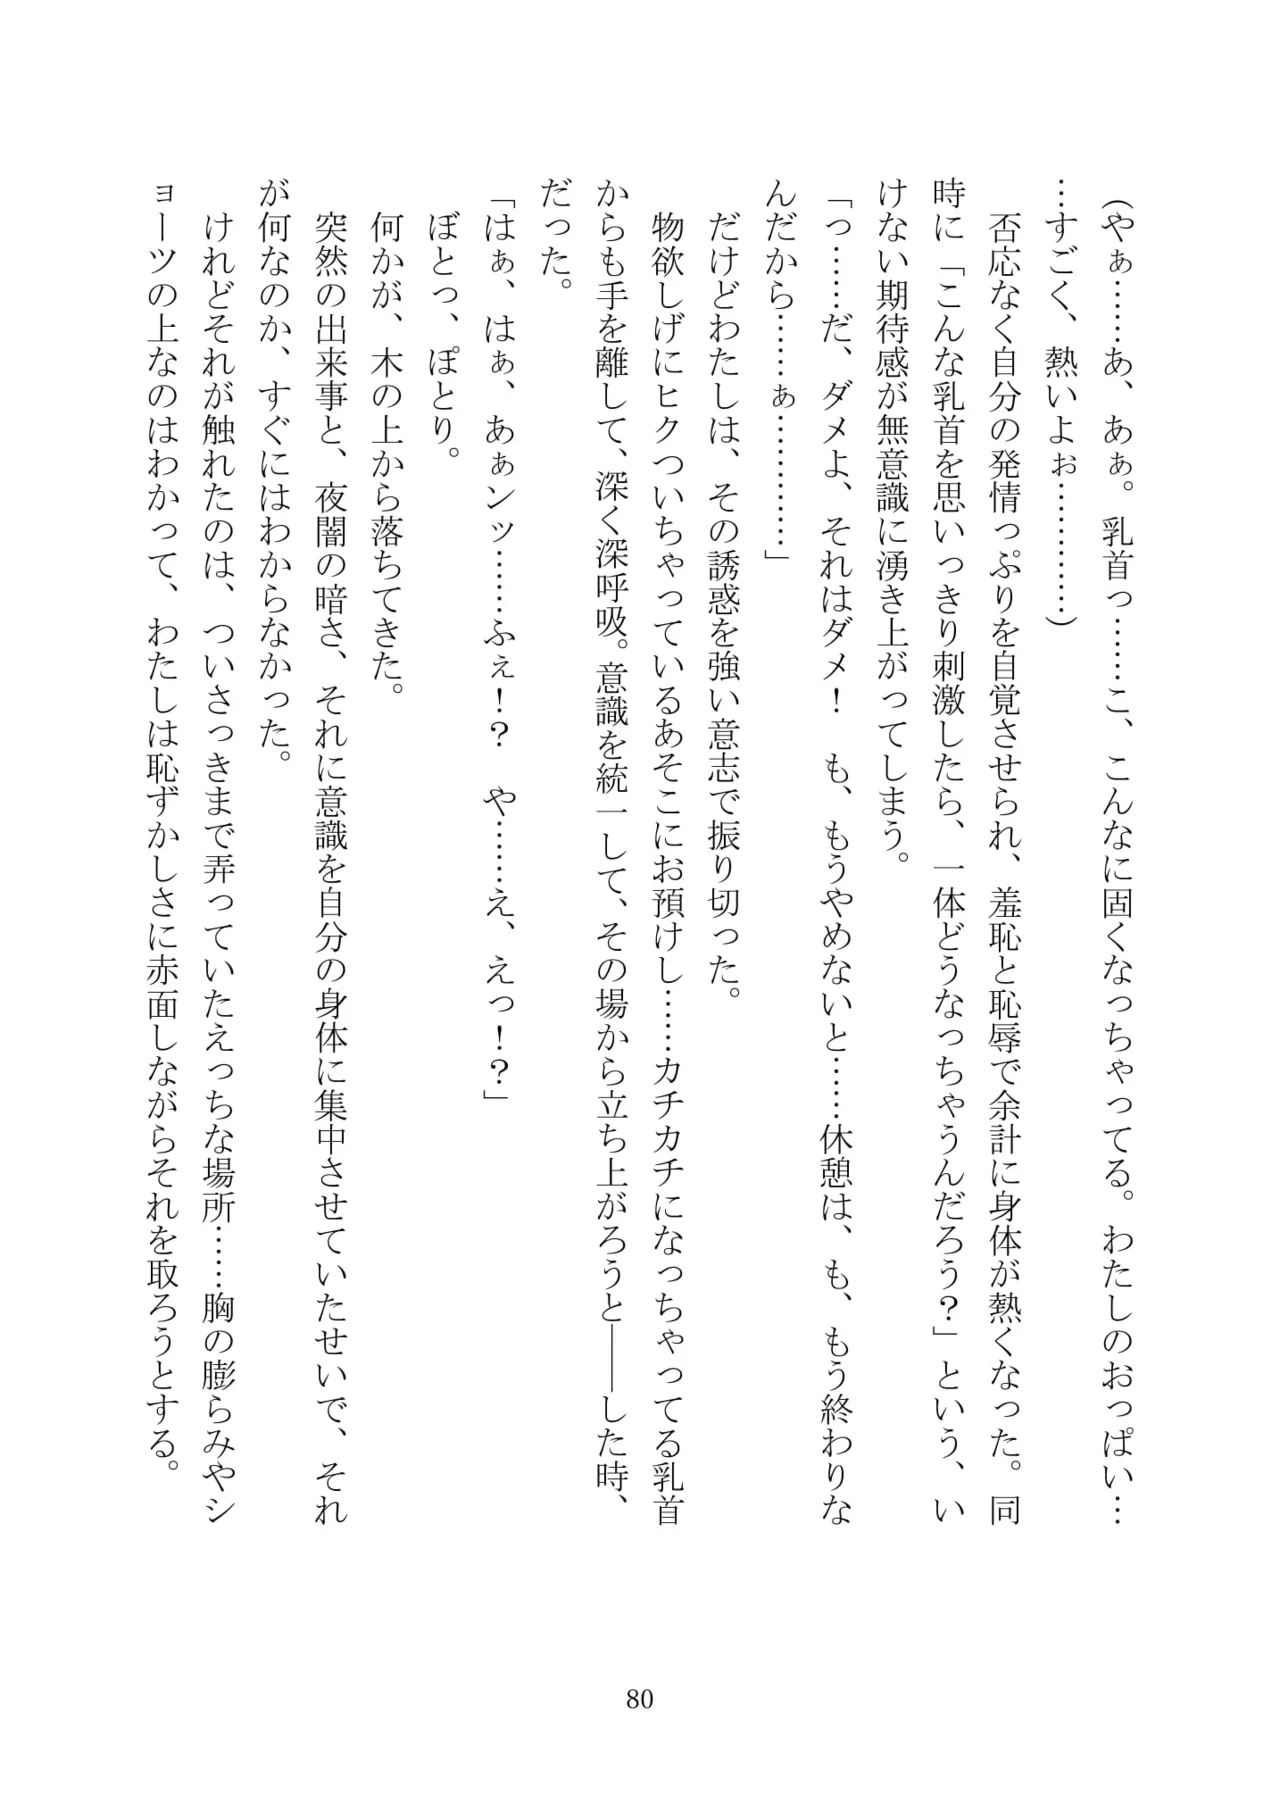 （やぁ……あ、あぁ。乳首っ……こ、こんなに固くなっちゃってる。わたしのおっぱい…
…すごく、熱いよぉ…………）
　否応なく自分の発情っぷりを自覚させられ、羞恥と恥辱で余計に身体が熱くなった。同
時に「こんな乳首を思いっきり刺激したら、一体どうなっちゃうんだろう？」という、い
けない期待感が無意識に湧き上がってしまう。
「っ……だ、ダメよ、それはダメ！　も、もうやめないと……休憩は、も、もう終わりな
んだから……ぁ…………」
　だけどわたしは、その誘惑を強い意志で振り切った。
　物欲しげにヒクついちゃっているあそこにお預けし……カチカチになっちゃってる乳首
からも手を離して、深く深呼吸。意識を統一して、その場から立ち上がろうと――した時、
だった。
「はぁ、はぁ、あぁンッ……ふぇ！？　や……え、えっ！？」
　ぼとっ、ぽとり。
　何かが、木の上から落ちてきた。
　突然の出来事と、夜闇の暗さ、それに意識を自分の身体に集中させていたせいで、それ
が何なのか、すぐにはわからなかった。
　けれどそれが触れたのは、ついさっきまで弄っていたえっちな場所……胸の膨らみやシ
ョーツの上なのはわかって、わたしは恥ずかしさに赤面しながらそれを取ろうとする。
80